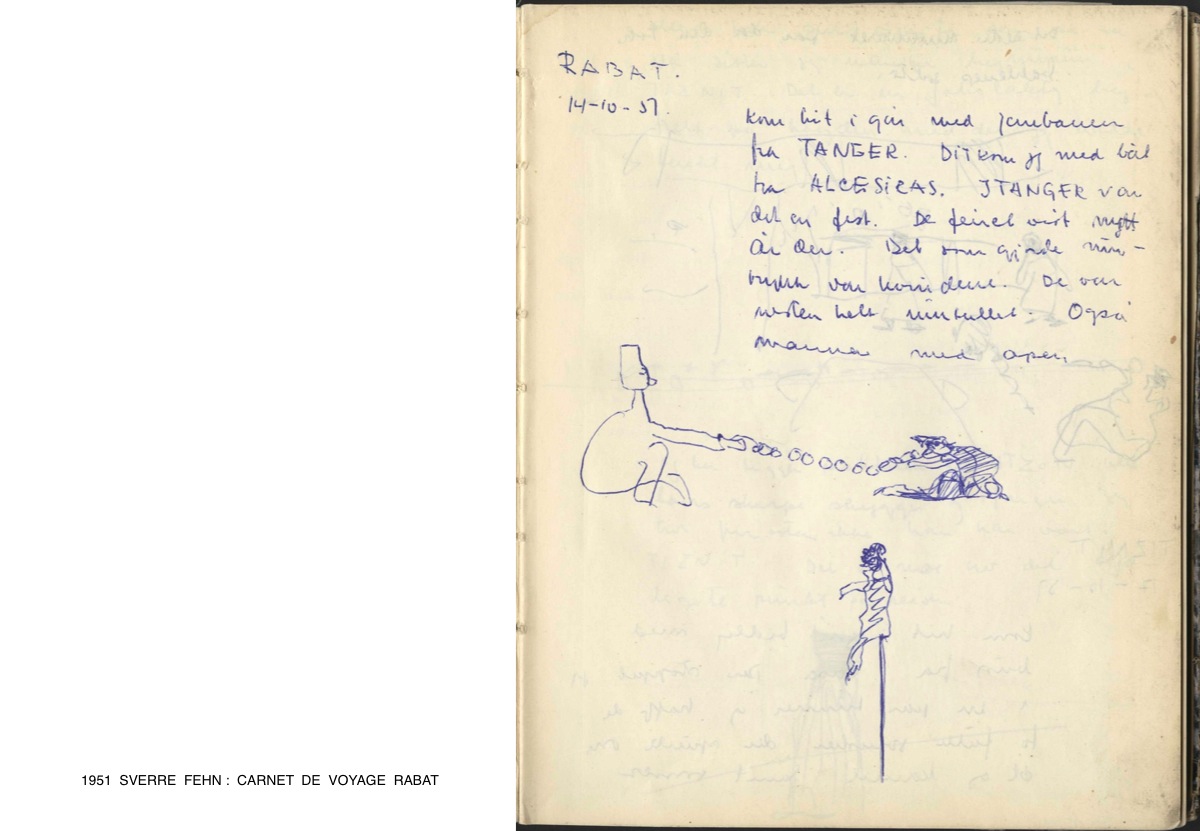 1951 SVERRE FEHN : CARNET DE VOYAGE RABAT
RABAT.
14-10-51.
Kom hit i går med jernbanen
fra TANGER. Dit kom jeg med båt
fra ALCESIRAS. I TANGER var
det en fest. De feiret visst nytt
år der. Det som gjorde inn-
trykk var kvindene. De var
nesten helt innhullet. Også
mannen med apen.